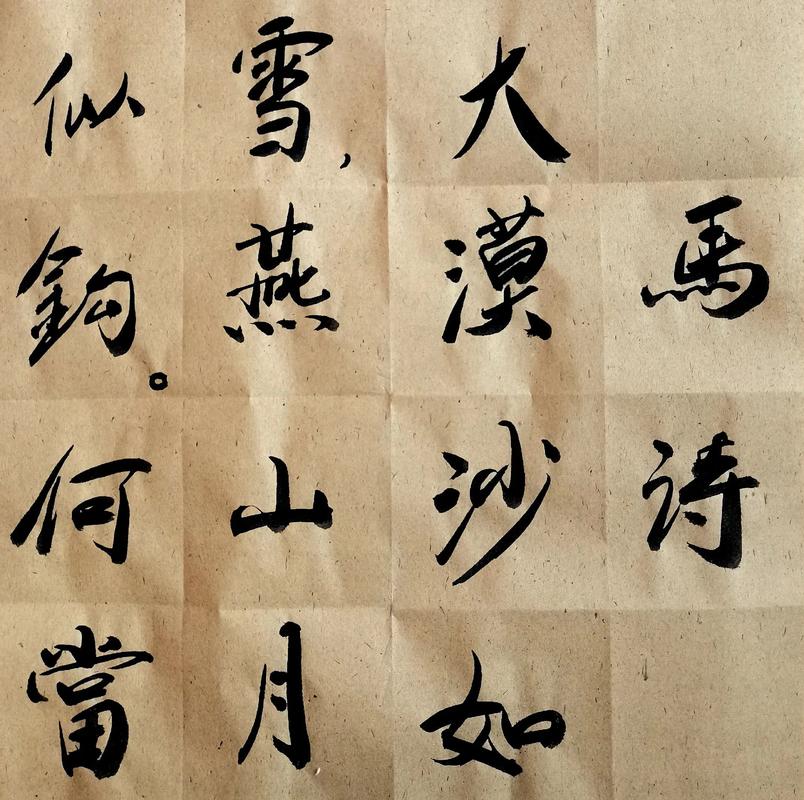 馬诗
大漠沙如
雪，燕山月
似鈎。何當